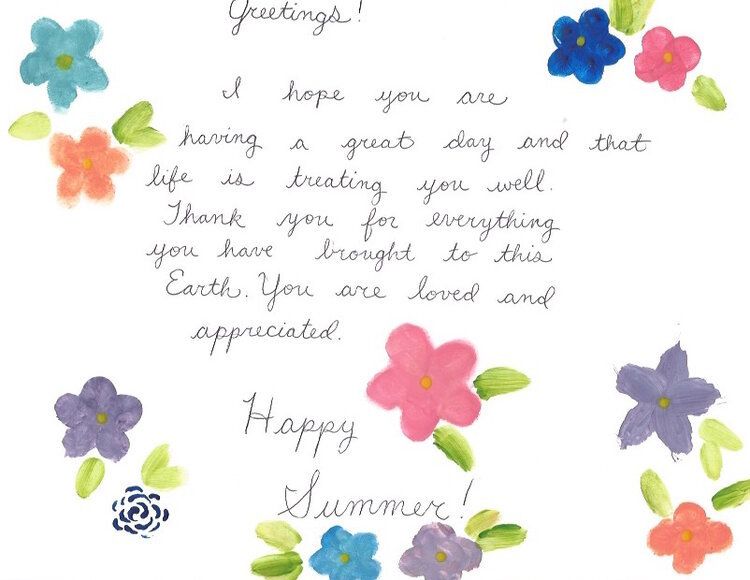 Greetings!
I hope you are
having a great day and that
life is treating you well.
Thank you for everything
you have brought to this
Earth. You are loved and
appreciated.
Happy
Summer!